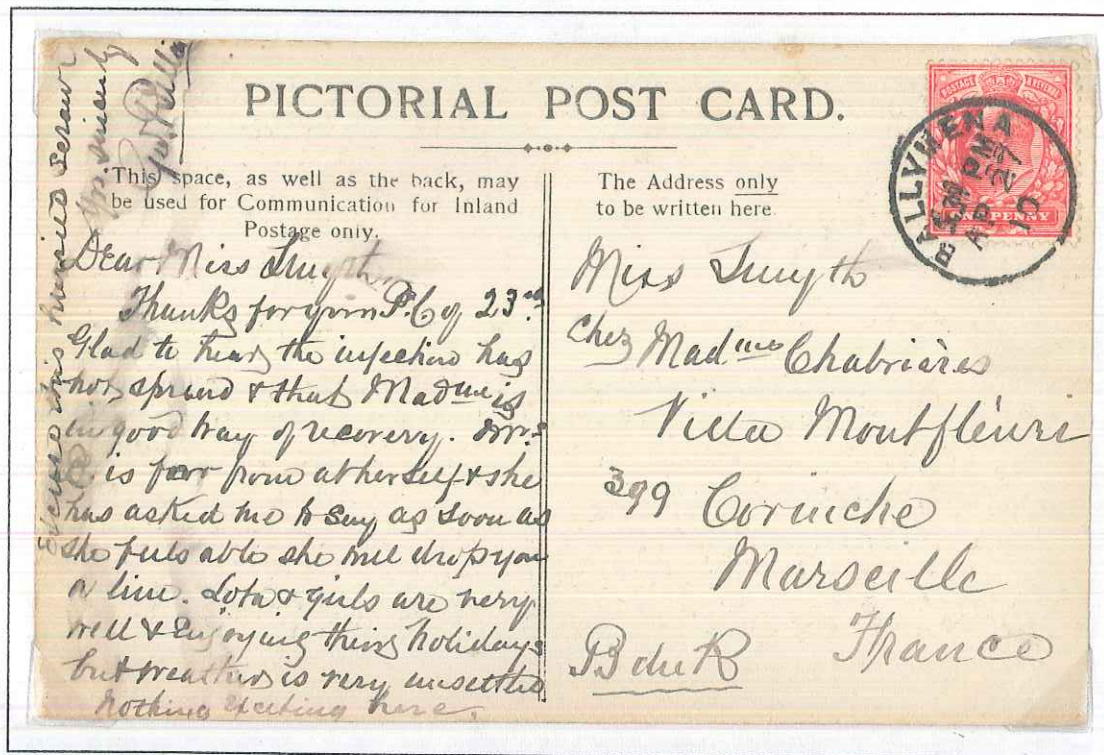 PICTORIAL POST CARD.
This space, as well as the back, may
be used for Communication for Inland
Postage only.
The Address only
to be written here
POSTAGE REVENUE
ONE PENNY
BALLYMENA
PM
AP 27
10
Dear Miss Smyth
Thanks for your P.C of 23rd
Glad to hear the infection has
not spread & that Madme is
in good way of recovery. Mrs
is far from at herself & she
has asked me to say as soon as
she feels able she will drop you
a line. Lota & girls are very
well & Enjoying their holidays
but weather is very unsettled
Nothing Exciting here.
Excuse this hurried scrawl
Yrs sincerely
Miss Smyth
Chez Madme Chabrières
Villa Montfleuri
399 Corniche
Marseille
France
B du R